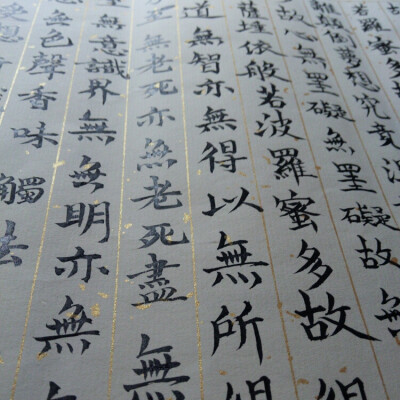 羅蜜多
顛倒夢想究竟涅
故心無罣礙無罣礙故無
薩埵依般若波羅蜜多故
道無智亦無得以無所得
無老死亦無老死盡無
無意識界無無明亦無
色聲香味觸法
受想